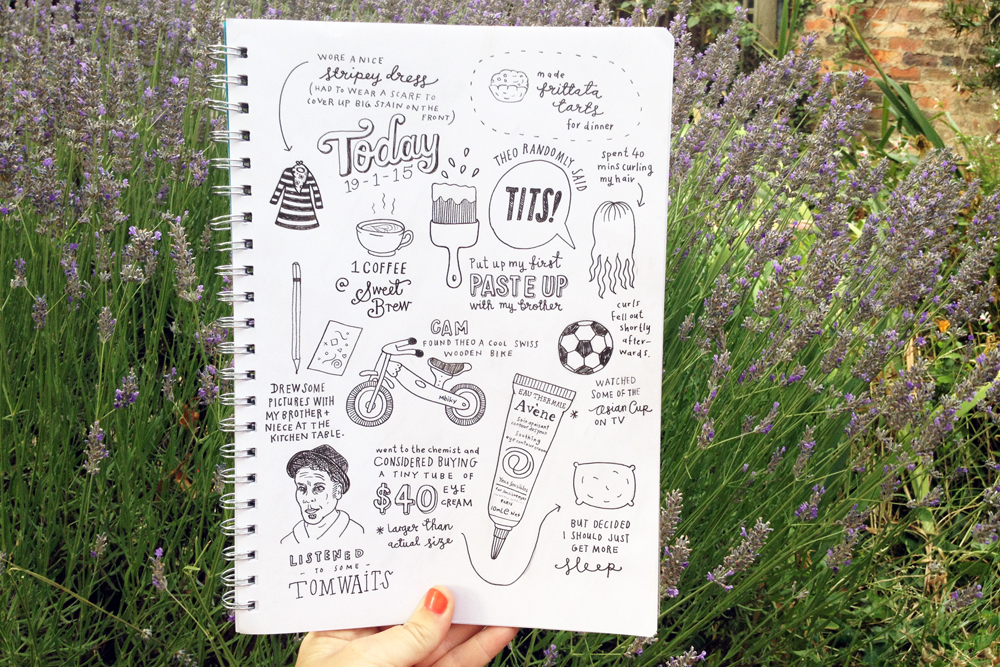 WORE A NICE
stripey dress
(HAD TO WEAR A SCARF TO
COVER UP BIG STAIN ON THE
FRONT)
made
frittata
tarts
for dinner
Today
19-1-15
THEO RANDOMLY SAID
TITS!
spent 40
mins curling
my hair
1 COFFEE
@ Sweet
Brew
Put up my first
PASTE UP
with my brother
curls
fell out
shortly
after-
wards.
CAM
FOUND THEO A COOL SWISS
WOODEN BIKE
Mbiky
DREW SOME
PICTURES WITH
MY BROTHER +
NIECE AT THE
KITCHEN TABLE.
WATCHED
SOME OF THE
Asian Cup
ON TV
went to the chemist and
CONSIDERED BUYING
A TINY TUBE OF
$40 EYE
CREAM
* Larger than
actual size
EAU THERMALE
Avène
*
Soin apaisant
contour des yeux
Soothing
eye contour cream
PARIS
10mL e
BUT DECIDED
I SHOULD JUST
GET MORE
sleep
LISTENED
- TO SOME -
TOM WAITS